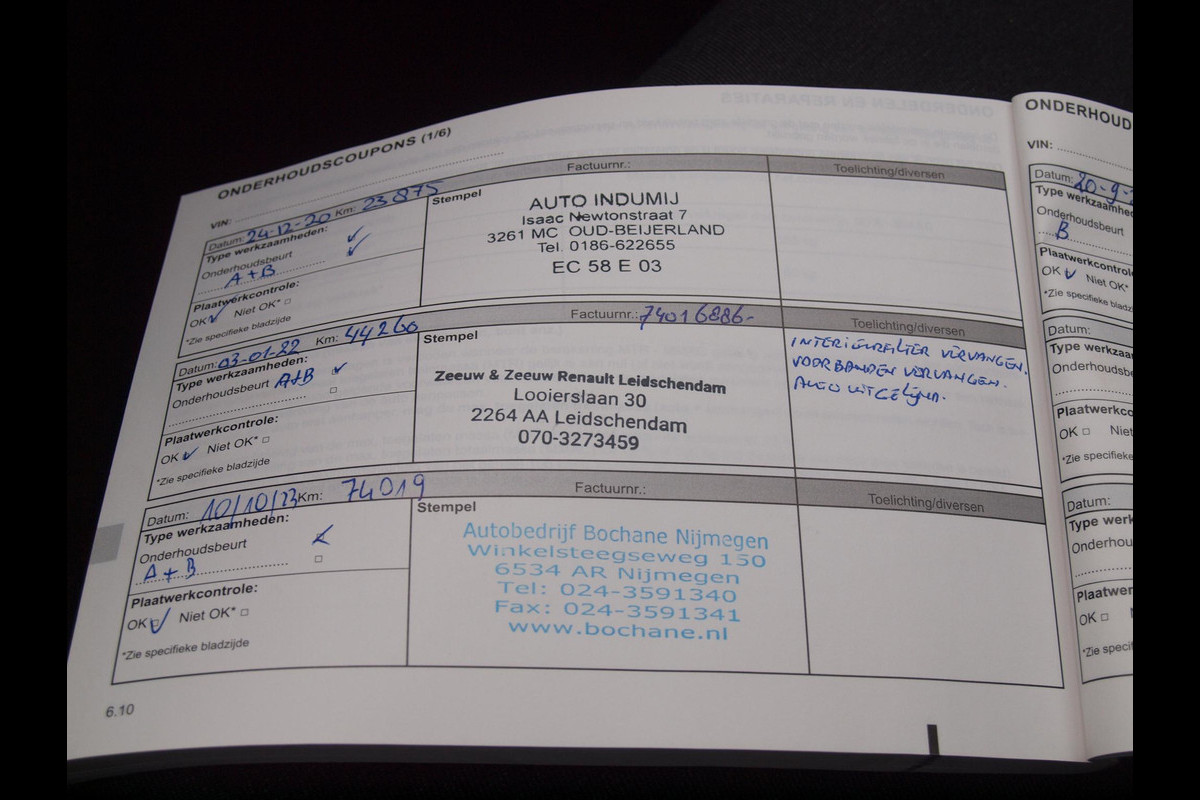 ONDERHOUDSCOUPONS (1/6)
VIN:
Datum: 24-12-20 Km: 23875
Type werkzaamheden:
Onderhoudsbeurt
A+B
Plaatwerkcontrole:
OK Niet OK*
*Zie specifieke bladzijde
Factuurnr.:
Stempel
AUTO INDUMIJ
Isaac Newtonstraat 7
3261 MC OUD-BEIJERLAND
Tel. 0186-622655
EC 58 E 03
Toelichting/diversen
Datum: 03-01-22 Km: 44260
Type werkzaamheden:
Onderhoudsbeurt A+B
Plaatwerkcontrole:
OK Niet OK*
*Zie specifieke bladzijde
Factuurnr.: 74016886-
Stempel
Zeeuw & Zeeuw Renault Leidschendam
Looierslaan 30
2264 AA Leidschendam
070-3273459
Toelichting/diversen
INTERIEURFILTER VERVANGEN.
VOORBANDEN VERVANGEN.
AUTO UITGELIJND.
Datum: 10/10/23 Km: 74019
Type werkzaamheden:
Onderhoudsbeurt
A+B
Plaatwerkcontrole:
OK Niet OK*
*Zie specifieke bladzijde
Factuurnr.:
Stempel
Autobedrijf Bochane Nijmegen
Winkelsteegseweg 150
6534 AR Nijmegen
Tel: 024-3591340
Fax: 024-3591341
www.bochane.nl
Toelichting/diversen
6.10
ONDERHOUD
VIN:
Datum: 20-9-
Type werkzaamhe
Onderhoudsbeurt
B
Plaatwerkcontrol
OK Niet OK*
*Zie specifieke bladz
Datum:
Type werkzaa
Onderhoudsb
Plaatwerkco
OK Niet
*Zie specifieke
Datum:
Type werk
Onderhou
Plaatwer
OK
*Zie speci